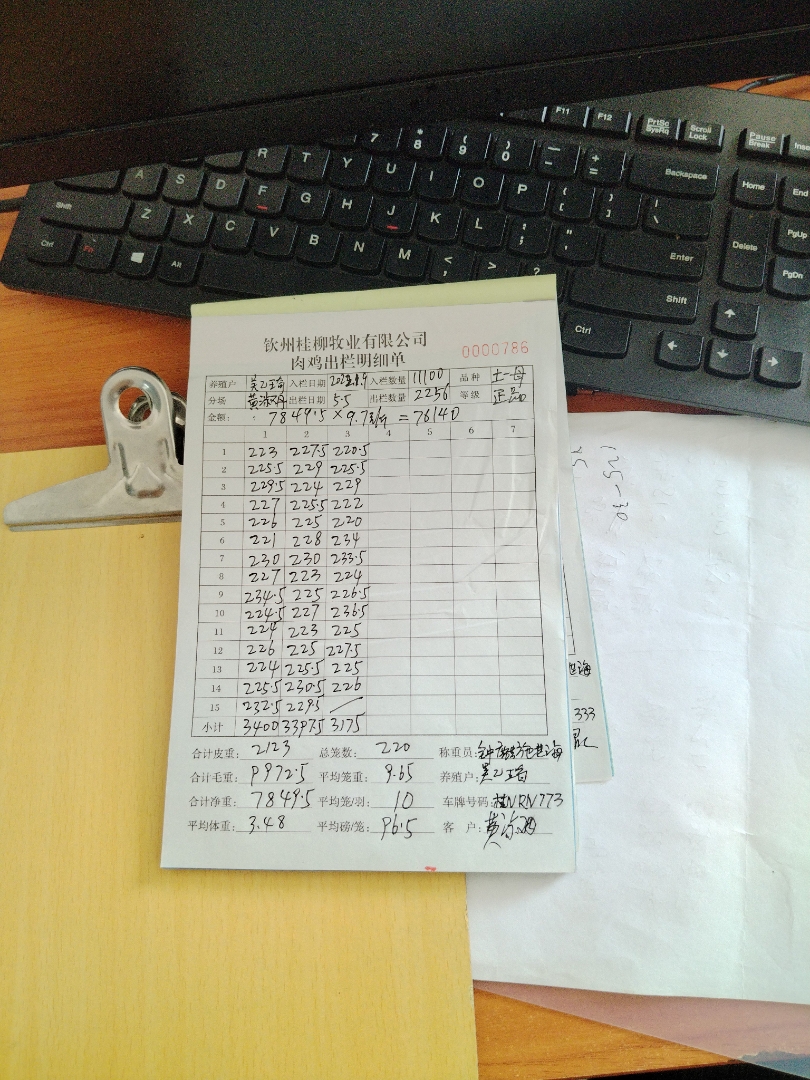 F11 F12 PrtSc SysRq Scroll Lock Pause Break Inse
7 * 8 ( 9 ) 0 — - + = Backspace Home End
R T Y U I O P { [ } ] | \ PgUp
A S D F G H J K L : ; " ' Enter Delete PgDn
Shift Z X C V B N M < > ? Shift
Ctrl Fn Alt Ctrl
钦州桂柳牧业有限公司
肉鸡出栏明细单 0000786
养殖户 入栏日期 入栏数量 11100 品种 土一母
分场 出栏日期 5.5 出栏数量 2256 等级 正品
金额: 7849.5×9.7元/斤=76140
1 2 3 4 5 6 7
1 223 227.5 220.5
2 225.5 229 225.5
3 229.5 224 229
4 227 225.5 222
5 226 225 220
6 221 228 234
7 230 230 233.5
8 227 223 224
9 234.5 225 226.5
10 224.5 227 236.5
11 224 223 225
12 226 225 227.5
13 224 225.5 225
14 225.5 230.5 226
15 232.5 229.5
小计 3400 3397.5 3175
合计皮重: 2123 总笼数: 220 称重员:
合计毛重: 9972.5 平均笼重: 9.65 养殖户:
合计净重: 7849.5 平均笼/羽: 10 车牌号码: 桂NRN773
平均体重: 3.48 平均磅/笼: 96.5 客户:
海
333